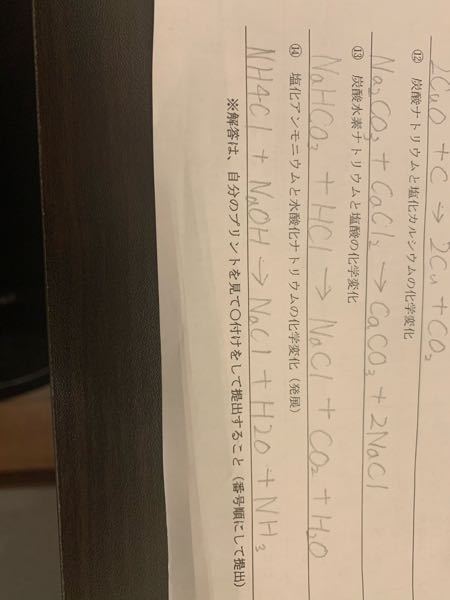 2CuO + C → 2Cu + CO₂
⑫ 炭酸ナトリウムと塩化カルシウムの化学変化
Na₂CO₃ + CaCl₂ → CaCO₃ + 2NaCl
⑬ 炭酸水素ナトリウムと塩酸の化学変化
NaHCO₃ + HCl → NaCl + CO₂ + H₂O
⑭ 塩化アンモニウムと水酸化ナトリウムの化学変化(発展)
NH4Cl + NaOH → NaCl + H2O + NH₃
※解答は、自分のプリントを見て〇付けをして提出すること(番号順にして提出)